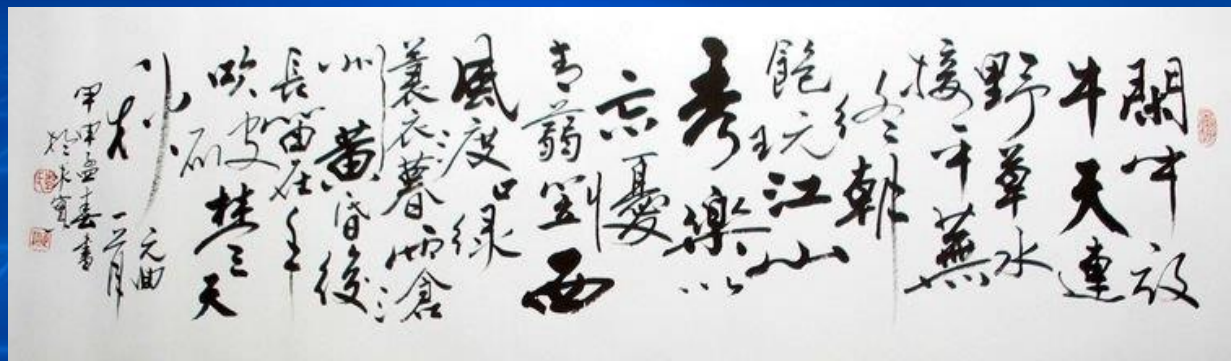 閑中放
牛天連
野草水
接平蕪
終朝
飽玩江山
秀樂以
忘憂
青蒻笠西
風渡口綠
蓑衣暮雨滄
州黃昏後
長笛在手
吹破楚天
秋
元曲
甲申孟春書